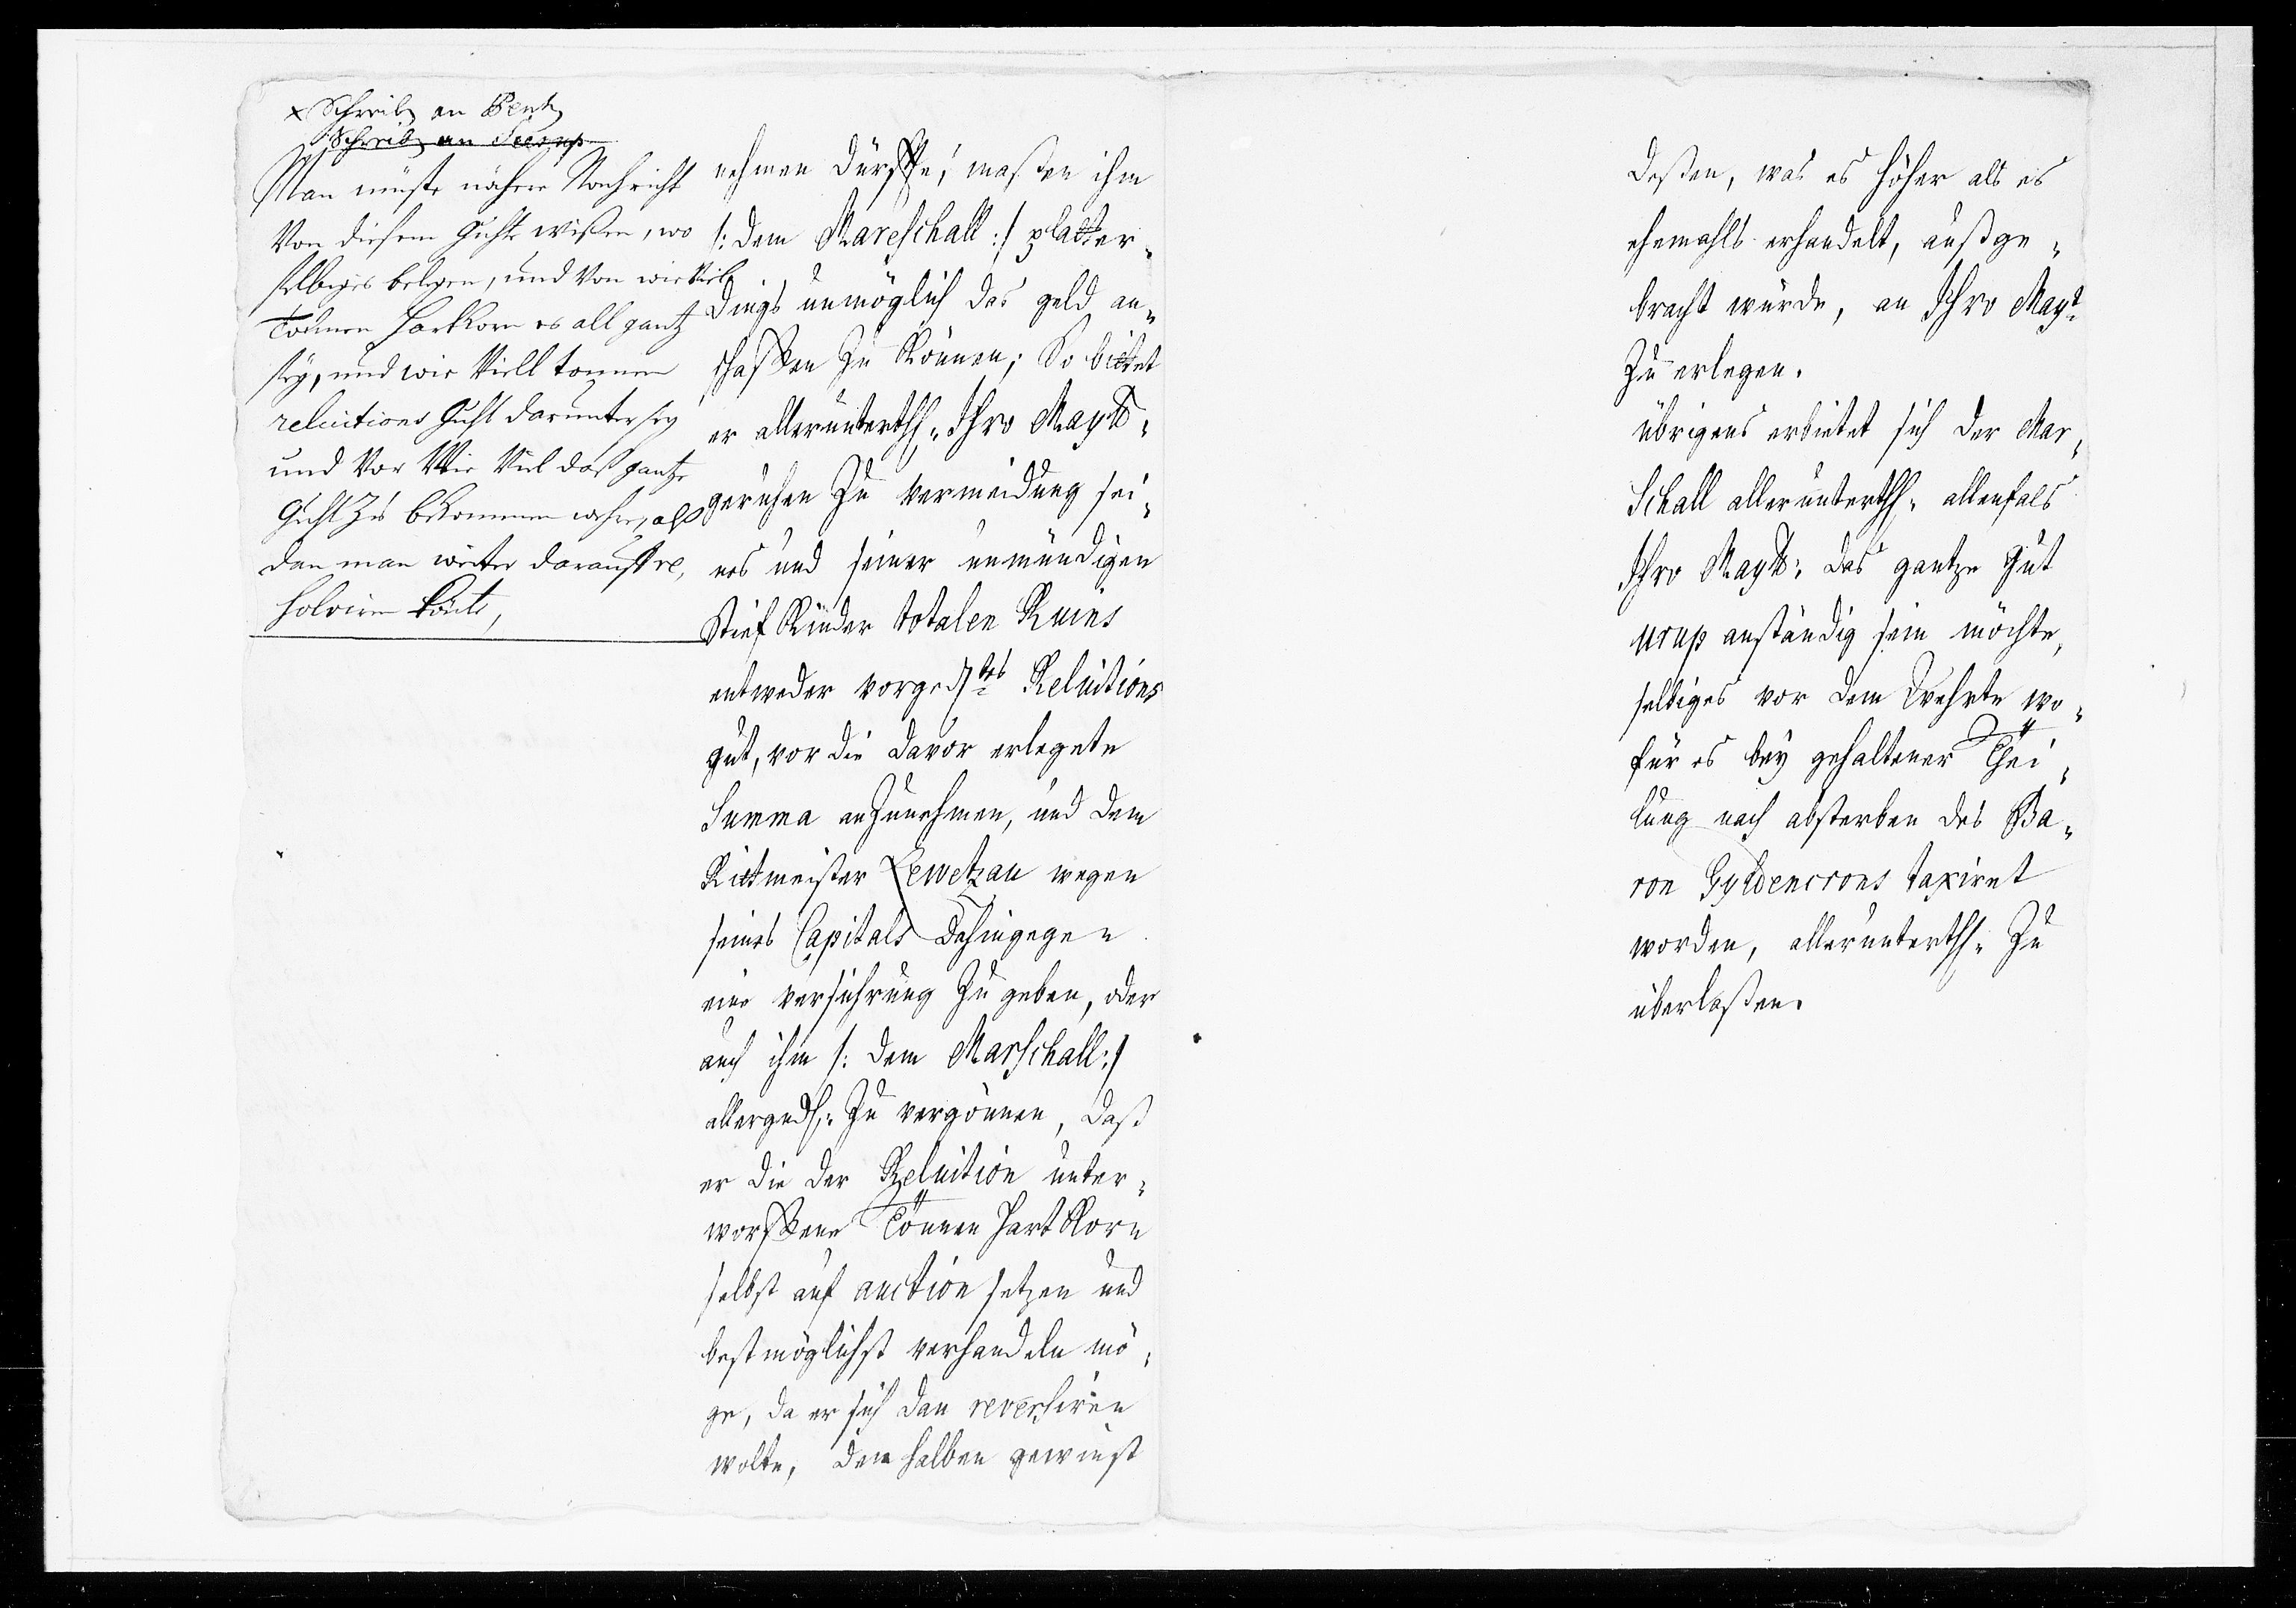 × Schreib an Bentz
Schreib an Seerup
Man müste nähere Nachricht
Von diesem Guhte wißen, wo
selbiges belegen, und Von wie Viel
Tonnen Hartkorn es all gantz
sey, und wie Viell tonnen
reluitions Guht darunter sey
und Vor Wie Viel daß gantze
Guht zu bekommen wehre, als
dan man weiter darauff re,
solviren könte,
nehmen dürffe; maßen ihm
/: dem Mareschall :/ platter-
dings unmöglich das geld an-
schaffen zu können; So bittet
er allerunterth. Ihro Maytt.
geruhen zu vermeidung sei-
nes und seiner unmündigen
Stief Kinder totalen Ruins
entweder vorgedtes Reluitions
gut, vor die davor erlegete
Summa anzunehmen, und dem
Rittmeister Lewetzau wegen
seines Capitals dahingegen
eine versicherung zu geben, oder
auch ihm /: dem Marschall :/
allergndl. zu vergönnen, daß
er die der Reluition unter-
worffene Tönnen Hart Korn
selbst auf auction setzen und
bestmöglichst verhandeln mö-
ge, da er sich dan reversiren
wolte, den halben gewinst
deßen, was es höher als es
ehemahls erhandelt, außge-
bracht würde, an Ihro Maytt
zu erlegen.
übrigens erbietet sich der Mar-
schall allerunterth. allenfals
Ihro Maytt: das gantze gut
urup anständig sein möchte,
selbiges vor dem Wehrte wo-
für es bey gehaltener Thei-
lung nach absterben des Ba-
ron Gyldencrons taxiret
worden, allerunterth. zu
überlaßen.